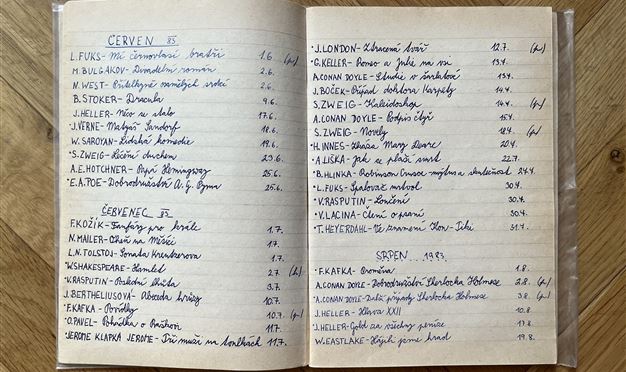 ČERVEN 83
L. FUKS - Mí černovlasí bratři 1.6. (p.)
M. BULGAKOV - Divadelní román 2.6.
N. WEST - Přítelkyně osamělých srdcí 2.6.
B. STOKER - Dracula 9.6.
J. HELLER - Něco se stalo 17.6.
'J. VERNE - Matyáš Sandorf 18.6.
W. SAROYAN - Lidská komedie 19.6.
'S. ZWEIG - Léčení duchem 23.6.
A.E. HOTCHNER - Papá Hemingway 25.6.
'E.A. POE - Dobrodružství A. G. Pyma 25.6.
ČERVENEC 83
F. KOŽÍK - Fanfáry pro krále 1.7.
N. MAILER - Oheň na Měsíci 1.7.
L.N. TOLSTOJ - Sonáta Kreutzerova 1.7.
'W. SHAKESPEARE - Hamlet 2.7.
V. RASPUTIN - Poslední lhůta 3.7.
J. BERTHELIUSOVÁ - Abeceda hrůzy 10.7.
'F. KAFKA - Povídky 10.7. (p.)
'O. PAVEL - Pohádka o Raškovi 11.7.
'JEROME KLAPKA JEROME - Tři muži na toulkách 11.7.
'J. LONDON - Ztracená tvář 12.7. (p.)
'G. KELLER - Romeo a Julie na vsi 13.4.
A. CONAN DOYLE - Studie v šarlatové 13.4.
J. BOČEK - Případ doktora Karpety 14.4.
S. ZWEIG - Kaleidoskop 14.4. (p.)
A. CONAN DOYLE - Podpis čtyř 15.4.
S. ZWEIG - Novely 18.4. (p.)
'H. INNES - Zkáza Mary Deare 20.4.
'A. LIŠKA - Jak se plaší smrt 22.7.
'B. HLINKA - Robinson Crusoe mýtus a skutečnost 24.4.
'L. FUKS - Spalovač mrtvol 30.4.
'V. RASPUTIN - Loučení 30.4.
'V. LACINA - Čtení o psaní 30.4.
'T. HEYERDAHL - Ve znamení Kon-Tiki 31.7.
SRPEN 1983
'F. KAFKA - Proměna 1.8.
A. CONAN DOYLE - Dobrodružství Sherlocka Holmese 2.8. (p.)
'A. CONAN DOYLE - Další případy Sherlocka Holmese 3.8. (p.)
J. HELLER - Hlava XXII 10.8.
'J. HELLER - Gold za všechny peníze 17.8.
W. EASTLAKE - Hájili jsme hrad 19.8.